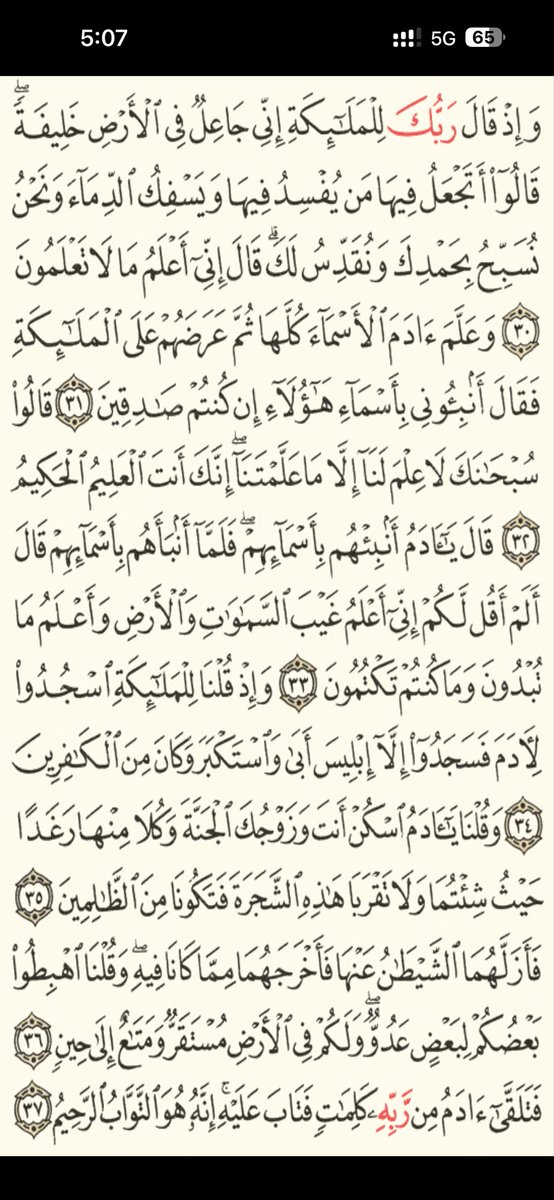 5:07 5G 65
وَإِذۡ قَالَ رَبُّكَ لِلۡمَلَٰٓئِكَةِ إِنِّي جَاعِلٞ فِي ٱلۡأَرۡضِ خَلِيفَةٗۖ
قَالُوٓاْ أَتَجۡعَلُ فِيهَا مَن يُفۡسِدُ فِيهَا وَيَسۡفِكُ ٱلدِّمَآءَ وَنَحۡنُ
نُسَبِّحُ بِحَمۡدِكَ وَنُقَدِّسُ لَكَۖ قَالَ إِنِّيٓ أَعۡلَمُ مَا لَا تَعۡلَمُونَ
٣٠ وَعَلَّمَ ءَادَمَ ٱلۡأَسۡمَآءَ كُلَّهَا ثُمَّ عَرَضَهُمۡ عَلَى ٱلۡمَلَٰٓئِكَةِ
فَقَالَ أَنۢبِـُٔونِي بِأَسۡمَآءِ هَٰٓؤُلَآءِ إِن كُنتُمۡ صَٰدِقِينَ ٣١ قَالُواْ
سُبۡحَٰنَكَ لَا عِلۡمَ لَنَآ إِلَّا مَا عَلَّمۡتَنَآۖ إِنَّكَ أَنتَ ٱلۡعَلِيمُ ٱلۡحَكِيمُ
٣٢ قَالَ يَٰٓـَٔادَمُ أَنۢبِئۡهُم بِأَسۡمَآئِهِمۡۖ فَلَمَّآ أَنۢبَأَهُم بِأَسۡمَآئِهِمۡ قَالَ
أَلَمۡ أَقُل لَّكُمۡ إِنِّيٓ أَعۡلَمُ غَيۡبَ ٱلسَّمَٰوَٰتِ وَٱلۡأَرۡضِ وَأَعۡلَمُ مَا
تُبۡدُونَ وَمَا كُنتُمۡ تَكۡتُمُونَ ٣٣ وَإِذۡ قُلۡنَا لِلۡمَلَٰٓئِكَةِ ٱسۡجُدُواْ
لِأٓدَمَ فَسَجَدُوٓاْ إِلَّآ إِبۡلِيسَ أَبَىٰ وَٱسۡتَكۡبَرَ وَكَانَ مِنَ ٱلۡكَٰفِرِينَ
٣٤ وَقُلۡنَا يَٰٓـَٔادَمُ ٱسۡكُنۡ أَنتَ وَزَوۡجُكَ ٱلۡجَنَّةَ وَكُلَا مِنۡهَا رَغَدًا
حَيۡثُ شِئۡتُمَا وَلَا تَقۡرَبَا هَٰذِهِ ٱلشَّجَرَةَ فَتَكُونَا مِنَ ٱلظَّٰلِمِينَ ٣٥
فَأَزَلَّهُمَا ٱلشَّيۡطَٰنُ عَنۡهَا فَأَخۡرَجَهُمَا مِمَّا كَانَا فِيهِۖ وَقُلۡنَا ٱهۡبِطُواْ
بَعۡضُكُمۡ لِبَعۡضٍ عَدُوّٞۖ وَلَكُمۡ فِي ٱلۡأَرۡضِ مُسۡتَقَرّٞ وَمَتَٰعٌ إِلَىٰ حِينٖ ٣٦
فَتَلَقَّىٰٓ ءَادَمُ مِن رَّبِّهِۦ كَلِمَٰتٖ فَتَابَ عَلَيۡهِۚ إِنَّهُۥ هُوَ ٱلتَّوَّابُ ٱلرَّحِيمُ ٣٧